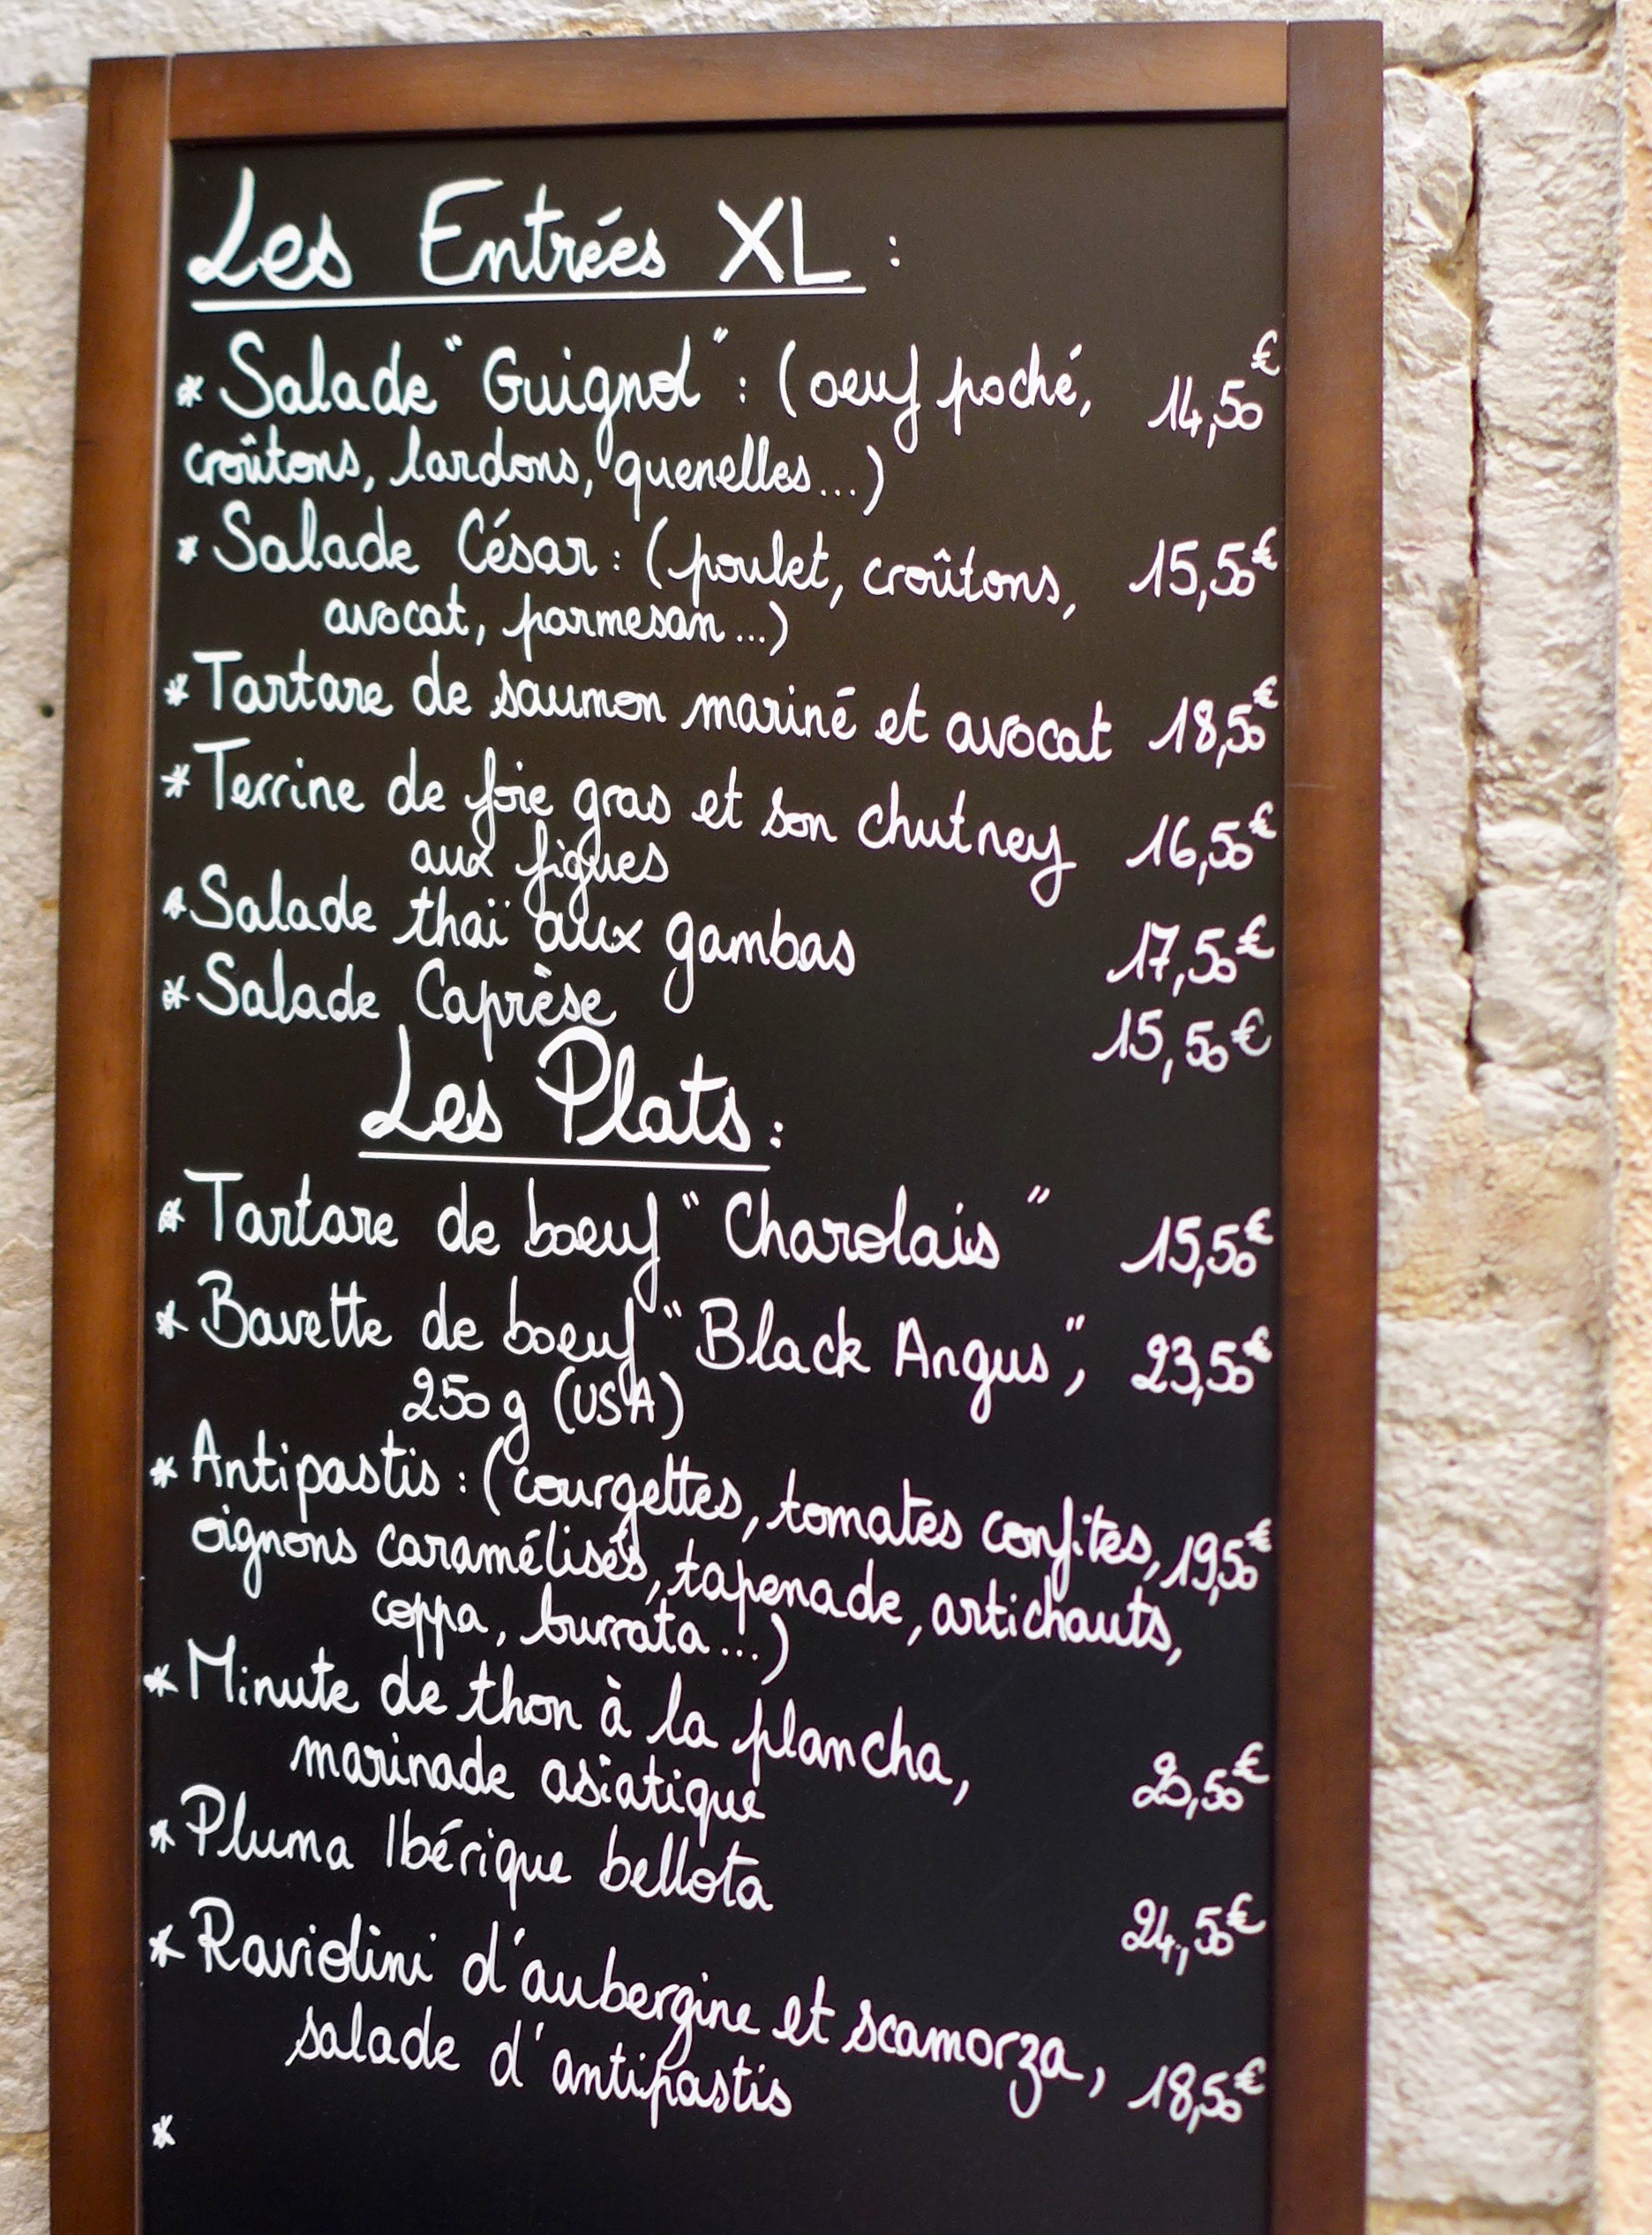 Les Entrées XL :
* Salade "Guignol" : (oeuf poché, 14,50€
croûtons, lardons, quenelles...)
* Salade César : (poulet, croûtons, 15,50€
avocat, parmesan...)
* Tartare de saumon mariné et avocat 18,50€
* Terrine de foie gras et son chutney 16,50€
aux figues
* Salade thaï aux gambas 17,50€
* Salade Caprèse 15,50€
Les Plats :
* Tartare de boeuf "Charolais" 15,50€
* Bavette de boeuf "Black Angus", 23,50€
250 g (USA)
* Antipastis : (courgettes, tomates confites, 19,50€
oignons caramélisés, tapenade, artichauts,
coppa, burrata...)
* Minute de thon à la plancha,
marinade asiatique
* Pluma Ibérique bellota 24,50€
* Raviolini d'aubergine et scamorza, 18,50€
salade d'antipastis
*